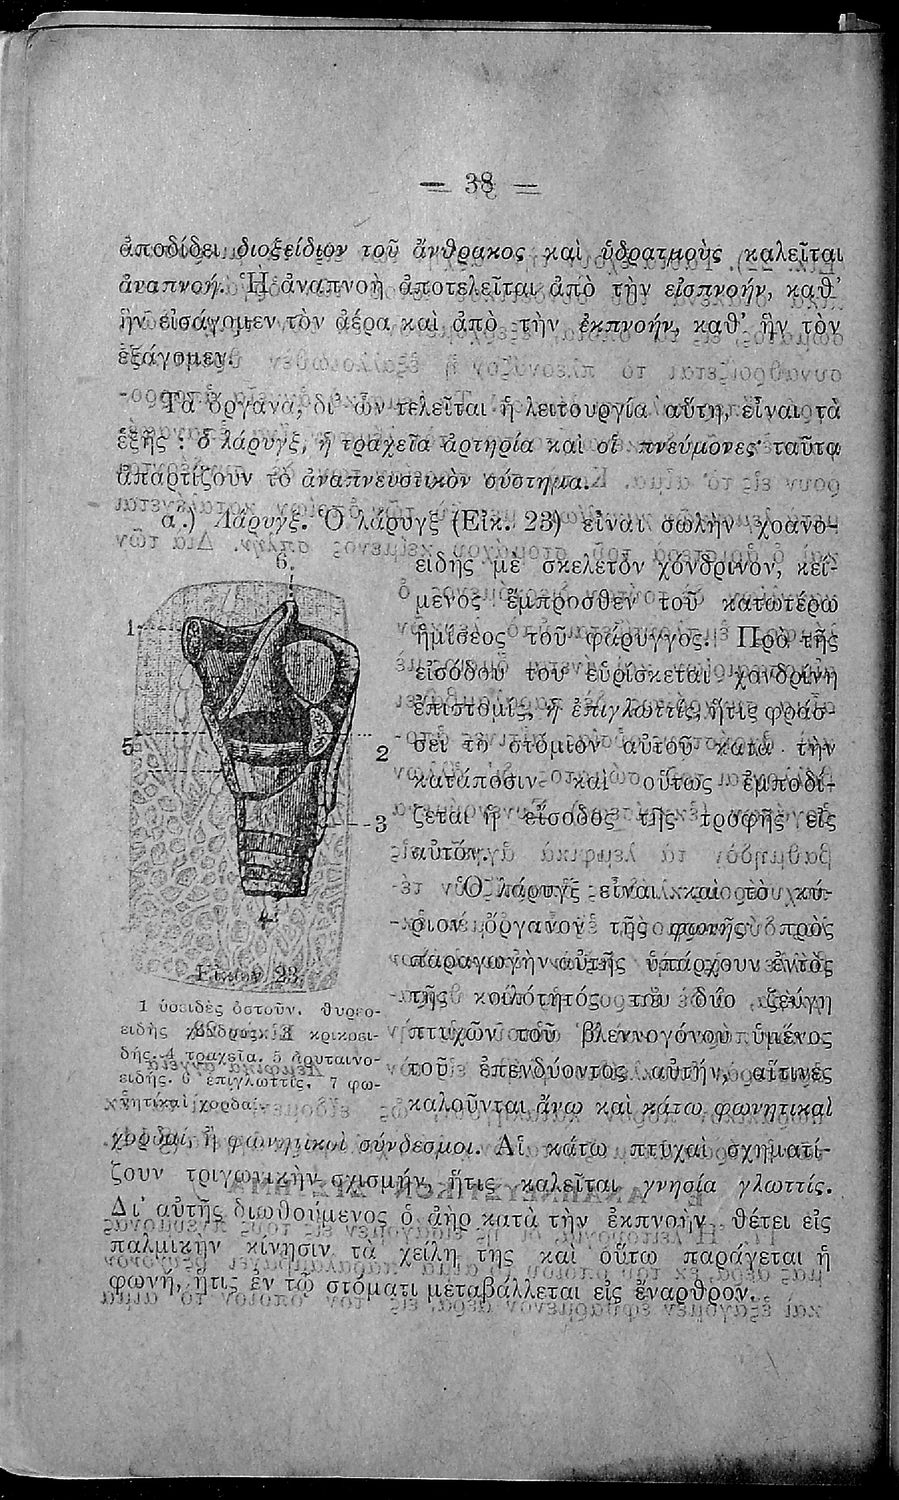 — 38 —
ἀποδίδει διοξείδιον τοῦ ἄνθρακος καὶ ὑδρατμοὺς καλεῖται
ἀναπνοή. Ἡ ἀναπνοὴ ἀποτελεῖται ἀπὸ τὴν εἰσπνοήν, καθ’
ἣν εἰσάγομεν τὸν ἀέρα καὶ ἀπὸ τὴν ἐκπνοήν, καθ’ ἣν τὸν
ἐξάγομεν.
Τὰ ὄργανα, δι’ ὧν τελεῖται ἡ λειτουργία αὕτη, εἶναι τὰ
ἑξῆς : ὁ λάρυγξ, ἡ τραχεῖα ἀρτηρία καὶ οἱ πνεύμονες· ταῦτα
ἀπαρτίζουν τὸ ἀναπνευστικὸν σύστημα.
α.) Λάρυγξ. Ὁ λάρυγξ (Εἰκ. 23) εἶναι σωλὴν χοανο-
ειδὴς μὲ σκελετὸν χόνδρινον, κεί-
μενος ἔμπροσθεν τοῦ κατωτέρω
ἡμίσεος τοῦ φάρυγγος. Πρὸ τῆς
εἰσόδου του εὑρίσκεται χονδρίνη
ἐπιστομίς, ἡ ἐπιγλωττίς, ἥτις φράσ-
σει τὸ στόμιον αὐτοῦ κατὰ τὴν
κατάποσιν καὶ οὕτως ἐμποδί-
ζεται ἡ εἴσοδος τῆς τροφῆς εἰς
αὐτόν.
Ὁ λάρυγξ εἶναι καὶ τὸ κύ-
ριον ὄργανον τῆς φωνῆς· πρὸς
παραγωγὴν αὐτῆς ὑπάρχουν ἐντὸς
τῆς κοιλότητός του δύο ζεύγη
πτυχῶν τοῦ βλεννογόνου ὑμένος
τοῦ ἐπενδύοντος αὐτήν, αἵτινες
καλοῦνται ἄνω καὶ κάτω φωνητικαὶ
χορδαί, ἢ φωνητικοὶ σύνδεσμοι. Αἱ κάτω πτυχαὶ σχηματί-
ζουν τριγωνικὴν σχισμήν, ἥτις καλεῖται γνησία γλωττίς.
Δι’ αὐτῆς διωθούμενος ὁ ἀὴρ κατὰ τὴν ἐκπνοὴν θέτει εἰς
παλμικὴν κίνησιν τὰ χείλη της καὶ οὕτω παράγεται ἡ
φωνή, ἥτις ἐν τῷ στόματι μεταβάλλεται εἰς ἔναρθρον.
6.
1
5
2
3
4
Εἰκὼν 23.
1 ὑοειδὲς ὀστοῦν. θυρεο-
ειδὴς χόνδρος. 3 κρικοει-
δής. 4 τραχεῖα. 5 ἀρυταινο-
ειδής. 6 ἐπιγλωττίς. 7 φω-
νητικαὶ χορδαί.